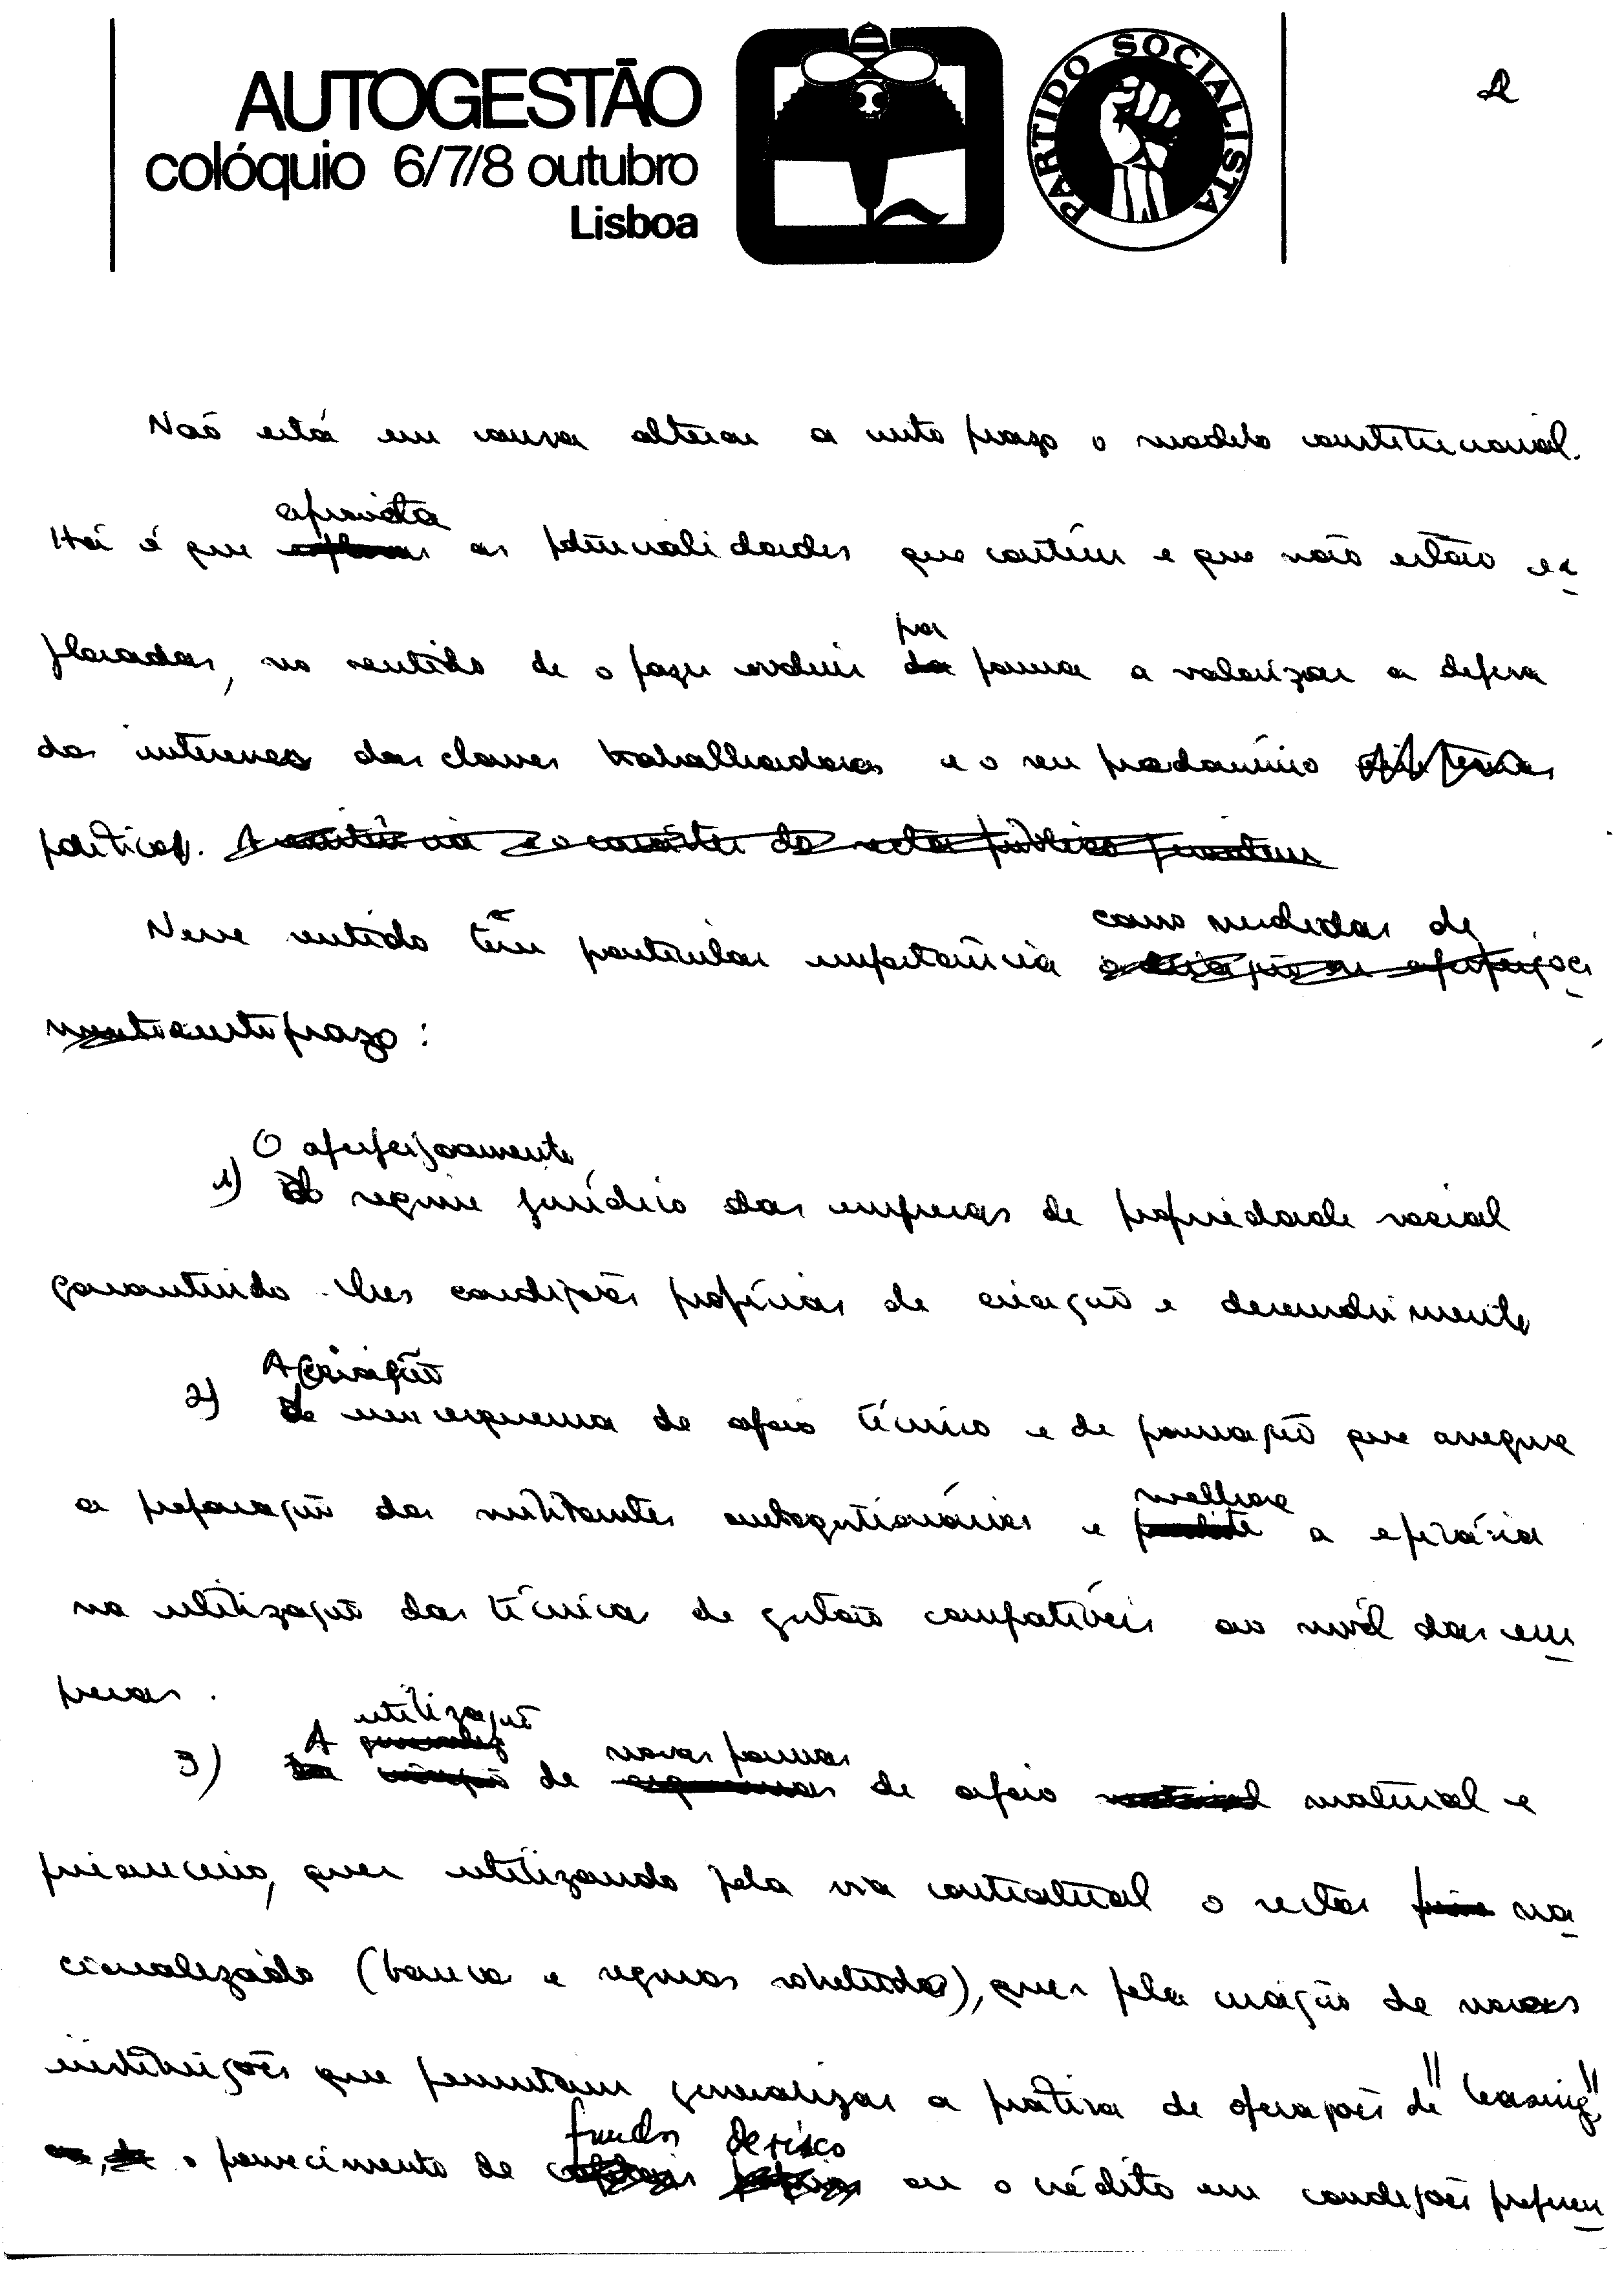 AUTOGESTÃO
colóquio 6/7/8 outubro
Lisboa
PARTIDO SOCIALISTA
2
Não está em causa alterar a curto prazo o modelo constitucional.
aproveitar
Há é que explorar as potencialidades que contém e que não estão ex
por
ploradas, no sentido de o fazer evoluir da forma a valorizar a defesa
dos interesses das classes trabalhadoras e o seu predomínio
político. A existência e o carácter do sector público permitem
como medidas de
Nesse sentido têm particular importância a criação ou aperfeiçoa
mento curto prazo :
O aperfeiçoamento
1) do regime jurídico das empresas de propriedade social
garantindo-lhes condições próprias de criação e desenvolvimento
A criação
2) de um esquema de apoio técnico e de formação que assegure
a preparação dos militantes autogestionários e
melhore
a eficácia
na utilização das técnicas de gestão compatíveis ao nível das em
presas.
utilização
3) A de
novas formas
de apoio material material e
financeiro, quer utilizando pela via contratual o sector na
cionalizado (banca e seguros sobretudo), quer pela criação de novas
instituições que permitam generalizar a prática de operações de "leasing"
fundos de risco
o fornecimento de ou o crédito em condições preferen